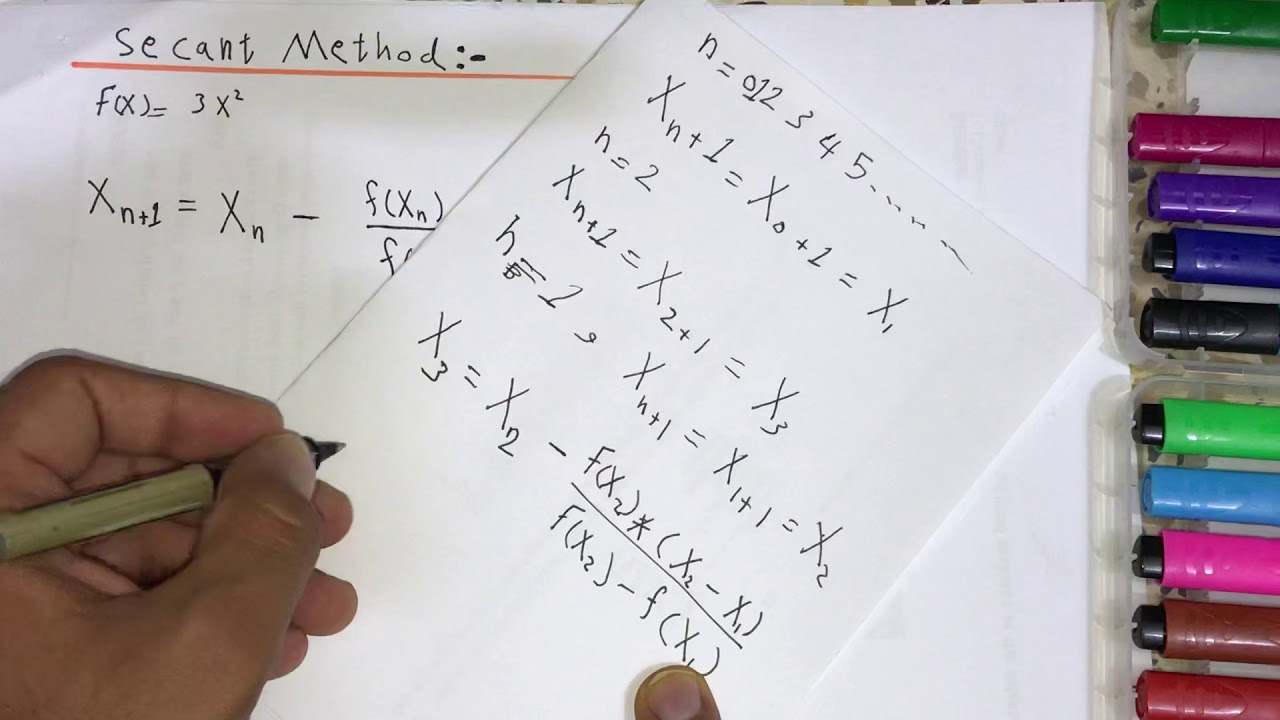 Secant Method:-
F(X)= 3X²
Xₙ₊₁ = Xₙ - f(Xₙ)
f(
n = 012 3 4 5 ......
Xₙ₊₁ = X₀₊₁ = X₁
n = 2
Xₙ₊₁ = X₂₊₁ = X₃
n = 1 , Xₙ₊₁ = X₁₊₁ = X₂
X₃ = X₂ - F(X₂)*(X₂-X₁)
F(X₂)-f(X₁)